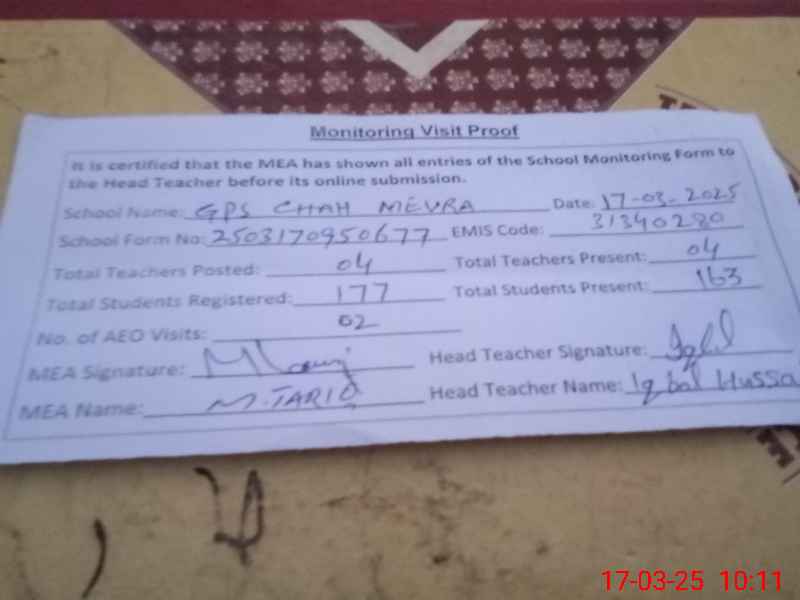 Monitoring Visit Proof
It is certified that the MEA has shown all entries of the School Monitoring Form to
the Head Teacher before its online submission.
School Name: GPS CHAH MEVRA Date: 17-03-2025
School Form No: 2503170950677 EMIS Code: 31340280
Total Teachers Posted: 04 Total Teachers Present: 04
Total Students Registered: 177 Total Students Present: 163
No. of AEO Visits: 02
MEA Signature: Head Teacher Signature: Iqbl
MEA Name: M.TARIQ Head Teacher Name: Iqbal Hussa
17-03-25 10:11